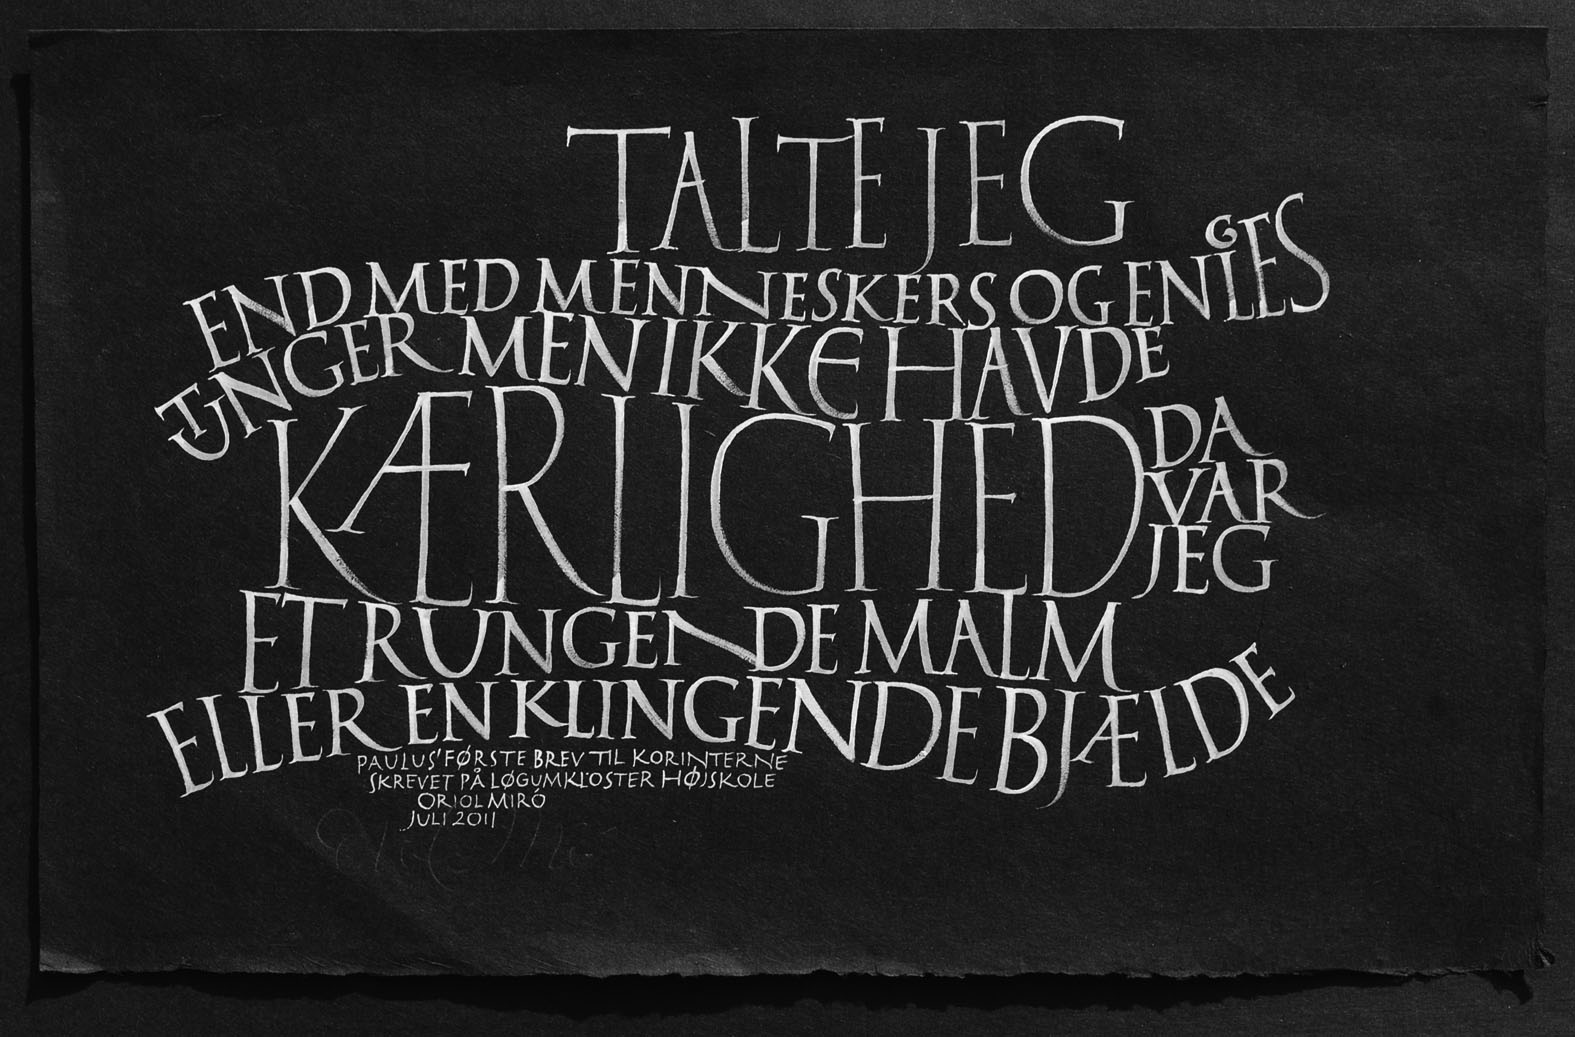 TALTE JEG
END MED MENNESKERS OG ENGLES
TUNGER MEN IKKE HAVDE
KÆRLIGHED
DA
VAR
JEG
ET RUNGENDE MALM
ELLER EN KLINGENDE BJÆLDE
PAULUS' FØRSTE BREV TIL KORINTERNE
SKREVET PÅ LØGUMKLOSTER HØJSKOLE
ORIOL MIRÓ
JULI 2011